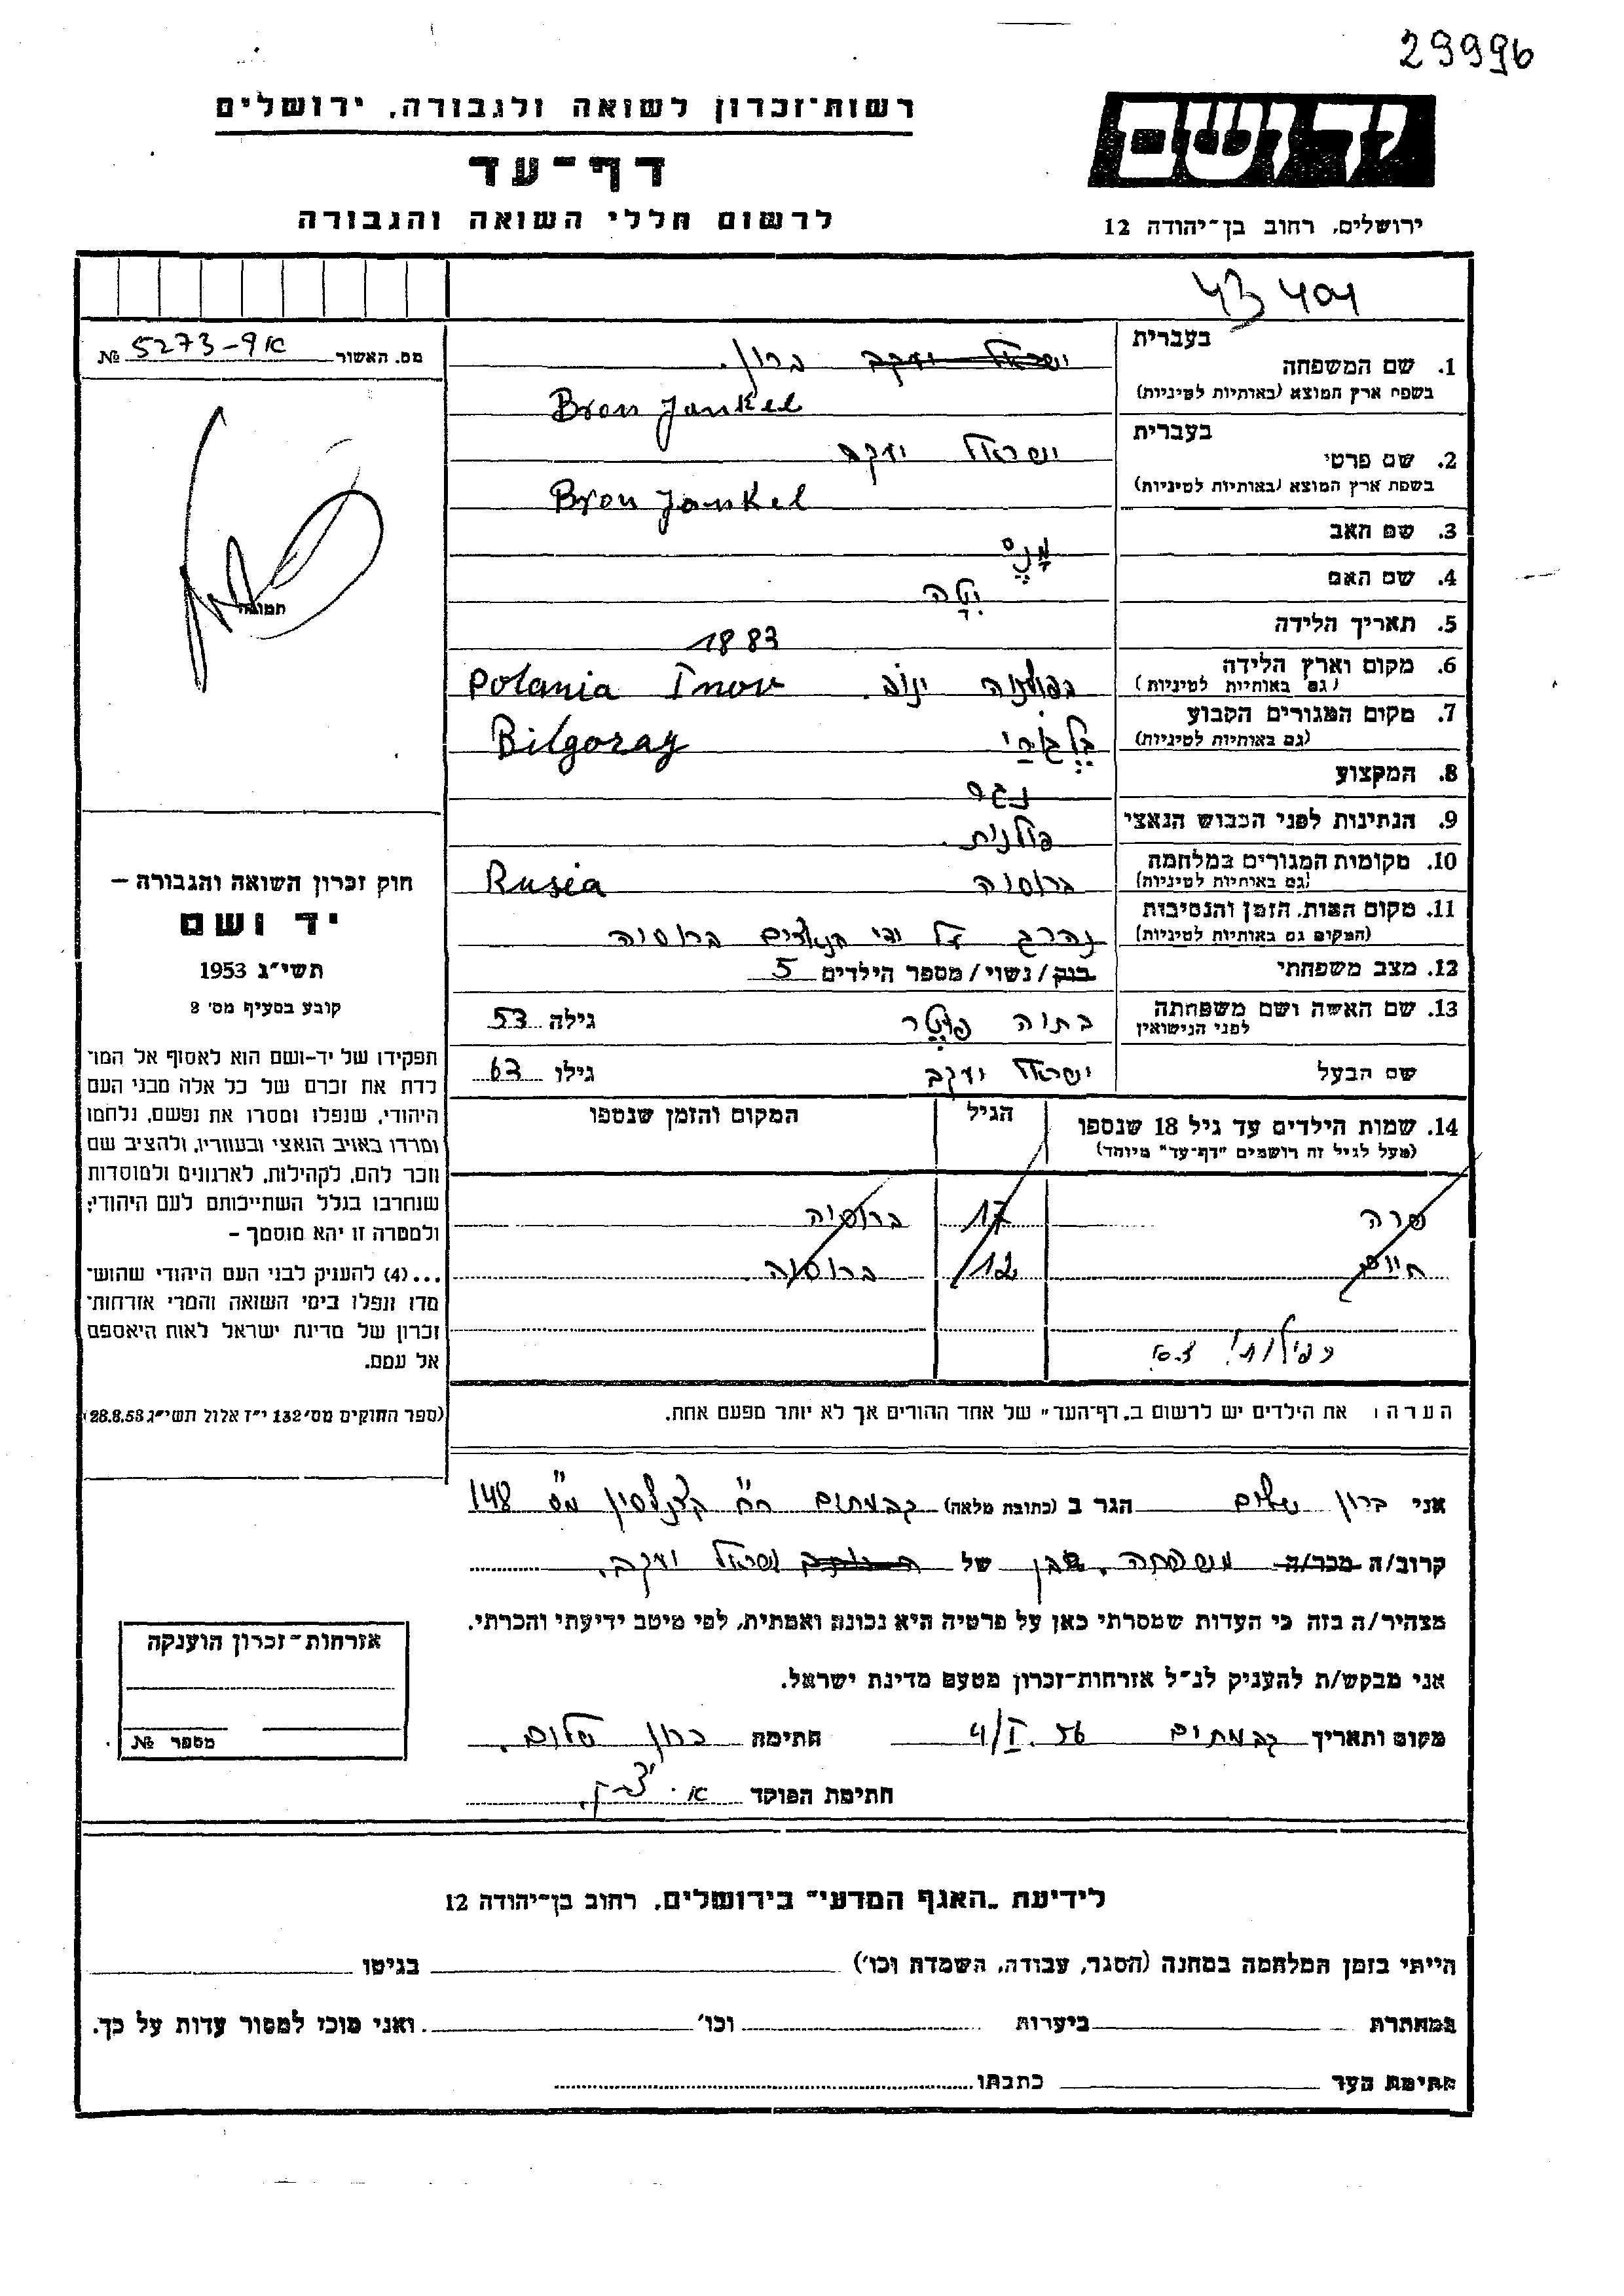 29996
יד ושם
רשות־זכרון לשואה ולגבורה, ירושלים
דף־עד
לרשום חללי השואה והגבורה
ירושלים, רחוב בן־יהודה 12
43404
מס. האשור 5273-9א №
תמונה
בעברית
1. שם המשפחה ישראל יעקב ברון.
בשפת ארץ המוצא (באותיות לטיניות) Bron Jankel
בעברית
2. שם פרטי ישראל יעקב
בשפת ארץ המוצא (באותיות לטיניות) Bron Jankel
3. שם האב
4. שם האם יטה
5. תאריך הלידה 1883
6. מקום וארץ הלידה בפולניה ינוב. Polania Inov
(גם באותיות לטיניות)
7. מקום המגורים הקבוע בלגורי Bilgoray
(גם באותיות לטיניות)
8. המקצוע נגר
9. הנתינות לפני הכבוש הנאצי פולנית.
10. מקומות המגורים במלחמה ברוסיה Rusia
(גם באותיות לטיניות)
11. מקום המות, הזמן והנסיבות נהרג על ידי הנאצים ברוסיה
(המקום גם באותיות לטיניות)
12. מצב משפחתי רווק/נשוי/מספר הילדים 5
13. שם האשה ושם משפחתה לפני הנישואין גילה 53
שם הבעל ישראל יעקב גילו 63
14. שמות הילדים עד גיל 18 שנספו הגיל המקום והזמן שנספו
(מעל לגיל זה רושמים "דף־עד" מיוחד)
שרה 17 ברוסיה
חיים 12 ברוסיה.
כפילות!
הערה: את הילדים יש לרשום ב„דף־העד" של אחד ההורים אך לא יותר מפעם אחת.
חוק זכרון השואה והגבורה –
יד ושם
תשי״ג 1953
קובע בסעיף מס׳ 2
תפקידו של יד־ושם הוא לאסוף אל המו־
לדת את זכרם של כל אלה מבני העם
היהודי, שנפלו ומסרו את נפשם, נלחמו
ומרדו באויב הנאצי ובעוזריו, ולהציב שם
וזכר להם, לקהילות, לארגונים ולמוסדות
שנחרבו בגלל השתייכותם לעם היהודי;
ולמטרה זו יהא מוסמך –
...(4) להעניק לבני העם היהודי שהוש־
מדו ונפלו בימי השואה והמרי אזרחות־
זכרון של מדינת ישראל לאות היאספם
אל עמם.
(ספר החוקים מס׳ 132 י״ז אלול תשי״ג 28.8.53)
אני ברון שלום הגר ב (כתובת מלאה) 148
קרוב/ה מכר/ה משפחה. בן של ישראל יעקב.
מצהיר/ה בזה כי העדות שמסרתי כאן על פרטיה היא נכונה ואמתית, לפי מיטב ידיעתי והכרתי.
אני מבקש/ת להעניק לנ״ל אזרחות־זכרון מטעם מדינת ישראל.
מקום ותאריך 4/I. 56 חתימה ברון שלום.
חתימת הפוקד
אזרחות־זכרון הוענקה
מספר №
לידיעת „האגף המדעי" בירושלים, רחוב בן־יהודה 12
הייתי בזמן המלחמה במחנה (הסגר, עבודה, השמדה וכו׳) בגיטו
במחתרת ביערות וכו׳ ואני מוכן למסור עדות על כך.
חתימת העד כתבתו